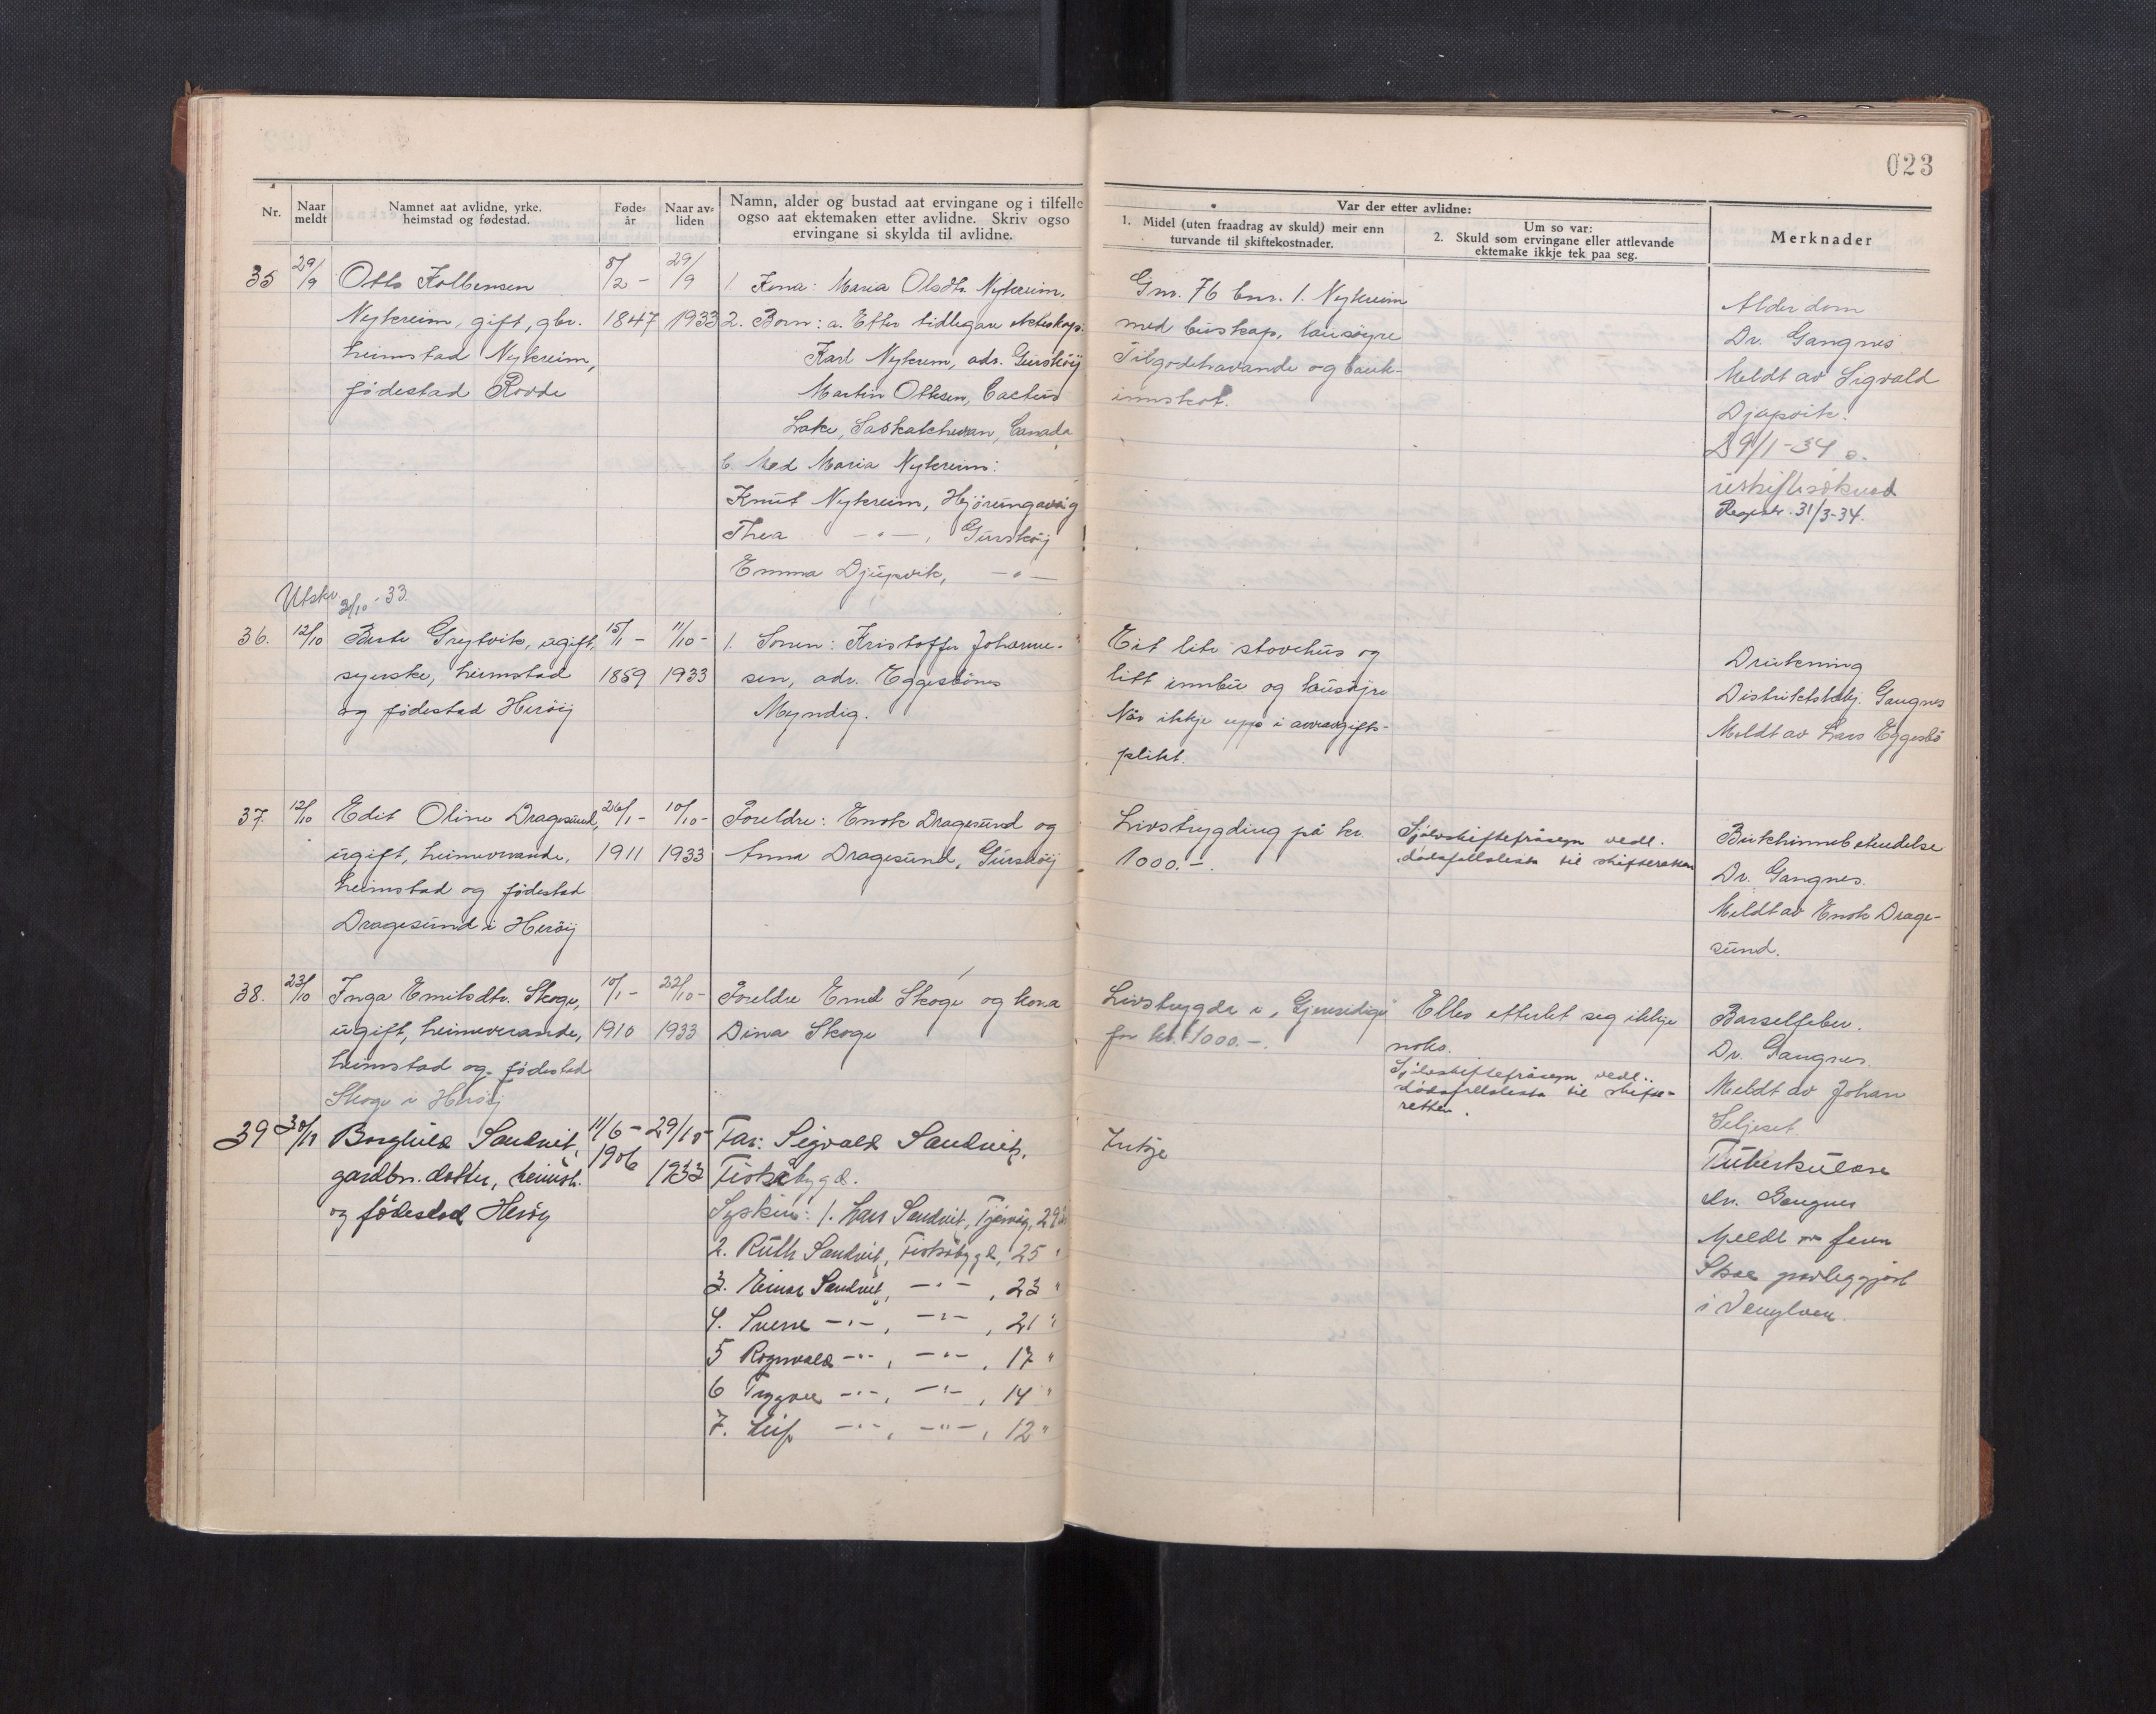 023
Nr.
Naar meldt
Namnet aat avlidne, yrke.
heimstad og fødestad.
Føde-
år
Naar av-
liden
Namn, alder og bustad aat ervingane og i tilfelle
ogso aat ektemaken etter avlidne. Skriv ogso
ervingane si skylda til avlidne.
Var der etter avlidne:
1. Midel (uten fraadrag av skuld) meir enn
turvande til skiftekostnader.
Um so var:
2. Skuld som ervingane eller attlevande
ektemake ikkje tek paa seg.
Merknader
35 29/9 Otto Kolbensen
Nykreim, gift, gbr.
heimstad Nykreim,
fødestad Rovde
8/2 -
1847
29/9
1933
1. Kona: Maria Olsdtr. Nykreim.
2. Born: a. Etter tidlegare ekteskap:
Karl Nykrem, adr. Gurskøy
Martin Ottesen, Cactus
Lake, Saskatchewan, Canada
b. Med Maria Nykreim:
Knut Nykreim, Hjørungavåg
Thea -"-, Gurskøy
Emma Djupvik, -"-
Gnr. 76 bnr. 1. Nykreim
med buskap, lausøyre
Tilgodehavande og bank-
innskot.
Alderdom
Dr. Gangnes
Meldt av Sigvald
Djupvik.
9/1-34
uskiftesøknad
Registr. 31/3-34.
Utskr. 31/10-33.
36. 12/10 Berte Grytvik, ugift,
syerske, heimstad
og fødestad Herøy
15/1 -
1859
11/10 -
1933
1. Sonen: Kristoffer Johanne-
sen, adr. Eggesbønes
Myndig.
Eit lite stovehus og
litt innbu og lausøyre
Når ikkje upp i arveavgifts-
plikt.
Drukning
Distriktslækj. Gangnes
Meldt av Lars Eggesbø
37. 12/10 Edit Oline Dragesund,
ugift, heimeverande,
heimstad og fødestad
Dragesund i Herøy
26/1 -
1911
10/10 -
1933
Foreldre: Enok Dragesund og
Anna Dragesund, Gurskøy
Livstrygding på kr.
1000.-.
Sjølvskiftefråsegn vedl.
dødsfallslista til skifteretten
Bukhinnebetendelse
Dr. Gangnes.
Meldt av Enok Drage-
sund.
38. 23/10 Inga Emilsdtr. Skoge,
ugift, heimeverande,
heimstad og fødestad
Skoge i Herøy
10/1 -
1910
22/10 -
1933
Foreldre Emil Skoge og kona
Dina Skoge
Livstrygda i "Gjensidige"
for kr. 1000.-.
Elles etterlet seg ikkje
noko.
Sjølvskiftefråsegn vedl.
dødsfallslista til skifte-
retten.
Barselfeber.
Dr. Gangnes.
Meldt av Johan
Seljeset.
39 30/10 Borghild Sandvik,
gardbr. dotter, heimst.
og fødestad Herøy
11/6 -
1906
29/10 -
1933
Far: Sigvald Sandvik,
Fiskåbygd.
Syskin: 1. Lars Sandvik, Tjørvåg, 29 år
2. Ruth Sandvik, Fiskåbygd, 25 "
3. Einar Sandvik, -"-, 23 "
4. Sverre -"-, -"-, 21 "
5 Rognvald -"-, -"-, 17 "
6 Trygve -"-, -"-, 14 "
7. Leif -"-, -"-, 12 "
Inkje
Tuberkulose
dr. Gangnes
Meldt av faren
Skal jordleggjast
i Vanylven.